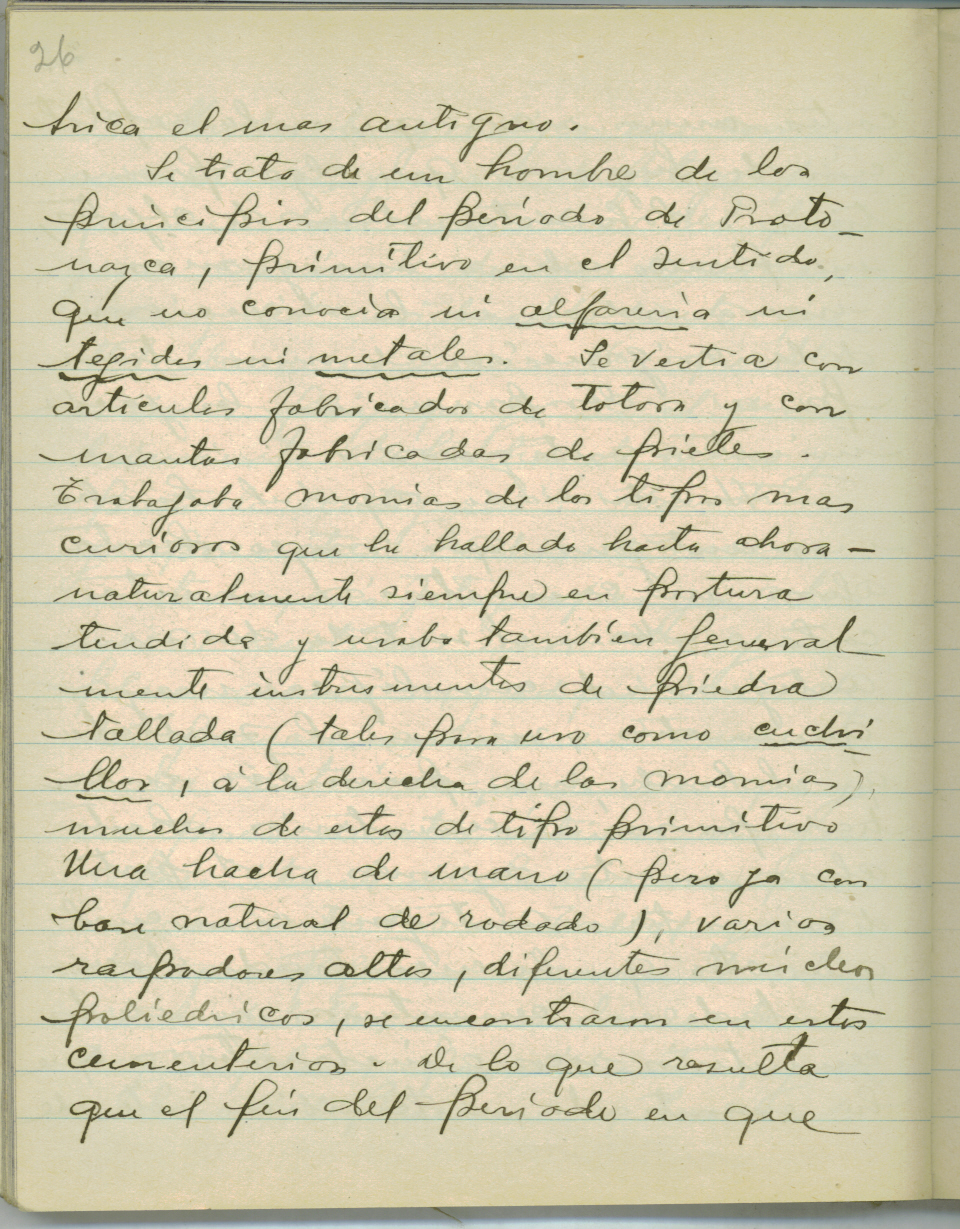 26
Arica el mas antiguo.
Se trata de un hombre de los
principios del periodo de Proto-
nazca, primitivo en el sentido,
que no conocia ni alfareria ni
tegidos ni metales. Se vestia con
articulos fabricados de totora y con
mantas fabricadas de pieles.
Trabajaba momias de los tipos mas
curiosos que he hallado hasta ahora –
naturalmente siempre en postura
tendida y usaba tambien general
mente instrumentos de piedra
tallada (tales para uso como cuchi
llos, á la derecha de las momias),
muchos de estos de tipo primitivo
Una hacha de mano (pero ya con
base natural de rodado), varios
raspadores altos, diferentes núcleos
poliedricos, se encontraron en estos
cementerios. De lo que resulta
que el fin del periodo en que